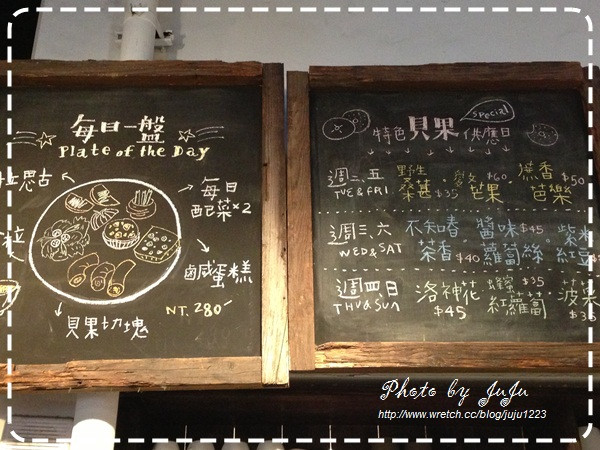 每日一盤
Plate of the Day
拉思古
每日
配菜×2
鹹蛋糕
NT. 280
貝果切塊
special
特色貝果供應日
週二.五
TUE & FRI
野生
桑葚 $35
芒果 $60
蕉香 $50
芭樂
週三.六
WED & SAT
不知春.
茶香 $40
醬味 $45
蘿蔔絲.
紫米
紅豆
週四.日
THU & SUN
洛神花
$45
$35
紅蘿蔔
菠果
$35
Photo by JuJu
http://www.wretch.cc/blog/juju1223